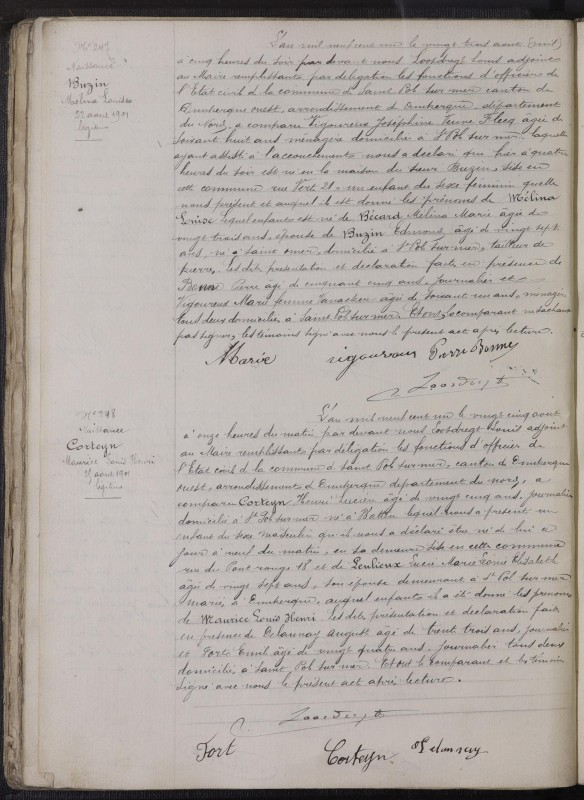 N° 247
Naissance
Buzin
Mélina Louise
22 aout 1901
légitime
L'an mil neuf cent un le vingt trois aout (mil)
à cinq heures du soir par devant nous Loosdregt Louis adjoint
au Maire remplissant par delegation les fonctions d'officier de
l'Etat civil de la commune de Saint Pol sur mer canton de
Dunkerque ouest, arrondissement de Dunkerque, departement
du Nord, a comparu Vigoureux Joséphine Veuve Flecq âgée de
soixante huit ans menagère domiciliée à St Pol sur mer laquelle
ayant assisté à l'accouchement nous a déclaré que hier à quatre
heures du soir est né en la maison du sieur Buzin, sise en
cette commune rue Vert 21, un enfant du sexe feminin quelle
nous présent et auquel il est donné les prénoms de Mélina
Louise lequel enfant est né de Bécard Melina Marie âgée de
vingt trois ans, épouse de Buzin Edmond, âgé de vingt sept
ans, né à Saint Omer, domicilié à St Pol sur mer, tailleur de
pierres. Les dites presentation et declaration faites en présence de
Bonne Pierre agé de cinquant cinq ans journalier et
Vigoureux Marie femme agée de soixant un ans, menagère
tous deux domiciliés à Saint Pol sur mer. Et la comparant ne sachant
pas signer, les témoins signé avec nous le présent act après lecture.
Marie vigoureux Pierre Bonne
Loosdregt
N° 248
Naissance
Corteyn
Maurice Louis Henri
25 aout 1901
légitime
L'an mil neuf cent un le vingt cinq aout
à onze heures du matin par devant nous Loosdregt Louis adjoint
au Maire remplissant par delegation les fonctions d'officier de
l'Etat civil de la commune de Saint Pol sur mer, canton de Dunkerque
ouest, arrondissement de Dunkerque departement du nord, a
comparu Corteyn Henri Lucien âgé de vingt cinq ans, journalier
domicilié à St Pol sur mer né à Watten lequel nous a présent un
enfant du sexe masculin qu'il nous a déclaré être né de lui ce
jour à neuf du matin, en sa demeure sise en cette commune
rue du Pont rouge 18 et de Lucie Marie Louis Elisabeth
âgé de vingt sept ans, son épouse demeurant à St Pol sur mer
mariés à Dunkerque, auquel enfant il a été donné les prenoms
de Maurice Louis Henri. Les dites présentation et declaration fait
en presence de Delaunay august agé de trent trois ans, journalier
et Fort Emil âgé de vingt quatre ans, journalier tous deux
domiciliés à Saint Pol sur mer. Et ont le comparant et les témoins
signé avec nous le présent act après lecture.
Loosdregt
Fort Corteyn Delaunay